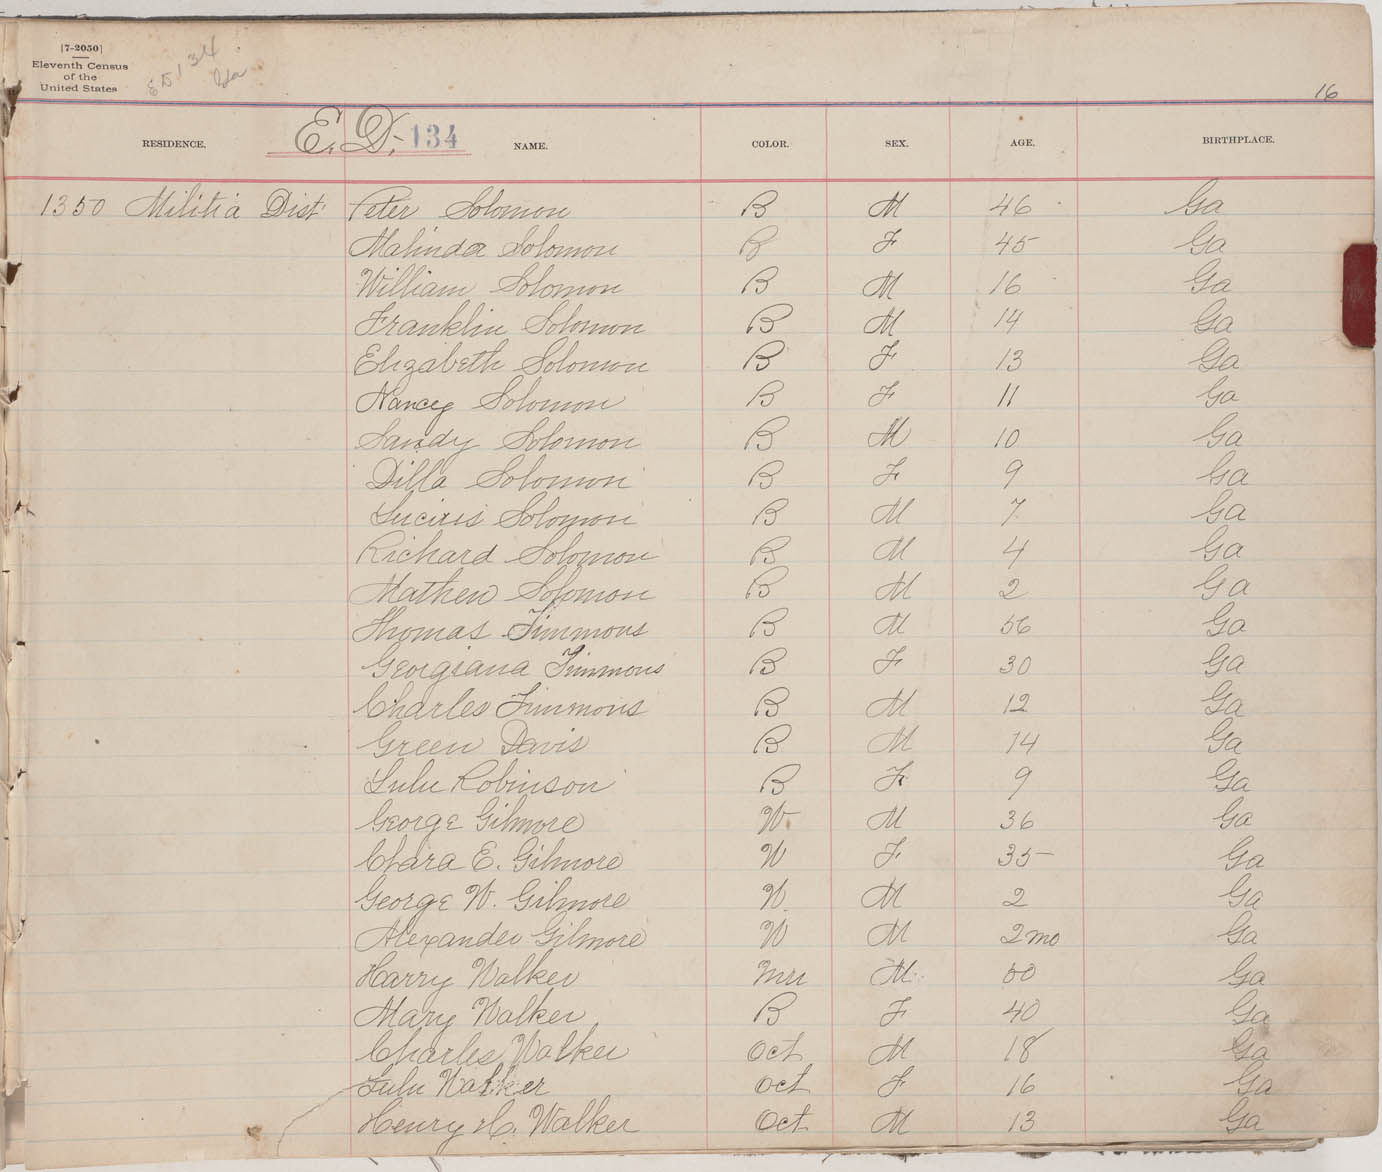 [7-2050]
Eleventh Census
of the
United States
ED 134
Ga
16
RESIDENCE. E.D. 134 NAME. COLOR. SEX. AGE. BIRTHPLACE.
1350 Militia Dist. Peter Solomon B M 46 Ga
Malinda Solomon B F 45 Ga
William Solomon B M 16 Ga
Franklin Solomon B M 14 Ga
Elizabeth Solomon B F 13 Ga
Nancy Solomon B F 11 Ga
Sandy Solomon B M 10 Ga
Dilla Solomon B F 9 Ga
Lucius Solomon B M 7 Ga
Richard Solomon B M 4 Ga
Mathew Solomon B M 2 Ga
Thomas Timmons B M 56 Ga
Georgiana Timmons B F 30 Ga
Charles Timmons B M 12 Ga
Green Davis B M 14 Ga
Lulu Robinson B F 9 Ga
George Gilmore W M 36 Ga
Clara E. Gilmore W F 35 Ga
George W. Gilmore W M 2 Ga
Alexander Gilmore W M 2mo Ga
Harry Walker Mu M Ga
Mary Walker B F 40 Ga
Charles Walker Oct M 18 Ga
Lulu Walker Oct F 16 Ga
Henry H. Walker Oct M 13 Ga